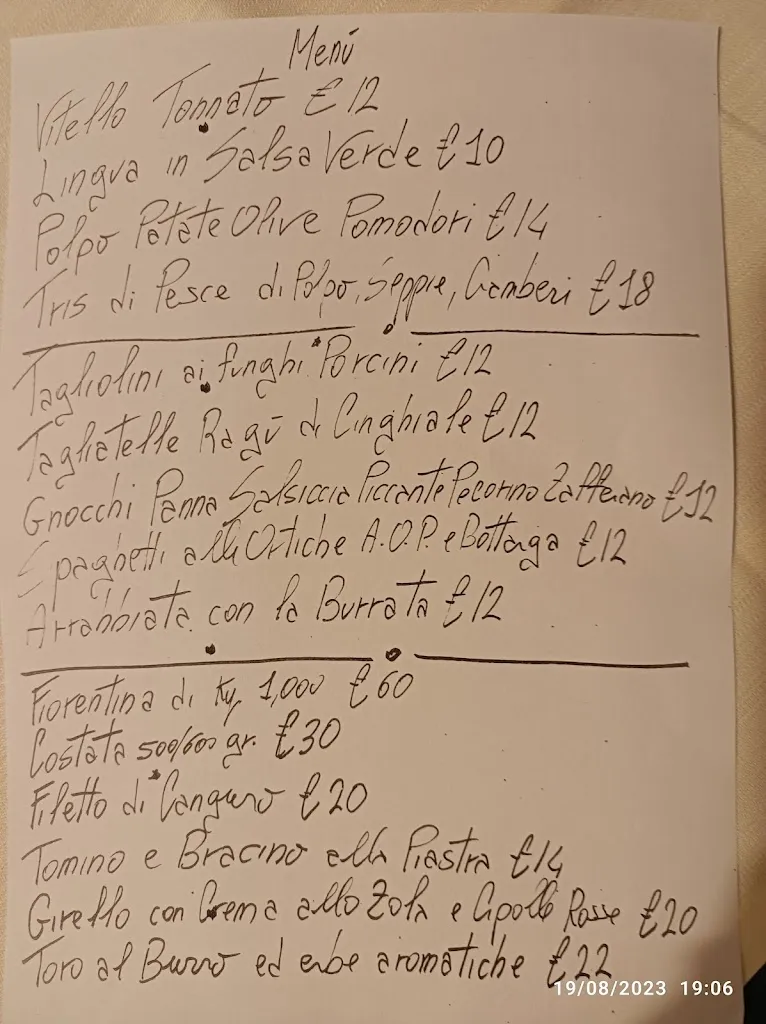 Menú
Vitello Tonnato £12
Lingua in Salsa Verde £10
Polpo Patate Olive Pomodori £14
Tris di Pesce di Polpo, Seppie, Gamberi £18
Tagliolini ai funghi Porcini £12
Tagliatelle Ragū di Cinghiale £12
Gnocchi Panna Salsiccia Piccante Pecorino Zafferano £12
Spaghetti alle Ortiche A.O.P. e Bottarga £12
Arrabbiata con la Burrata £12
Fiorentina di Kg 1,000 £60
Costata 500/600 gr. £30
Filetto di Canguro £20
Tomino e Bracino alla Piastra £14
Girello con Crema allo Zola e Cipolle Rosse £20
Toro al Burro ed erbe aromatiche £22
19/08/2023 19:06